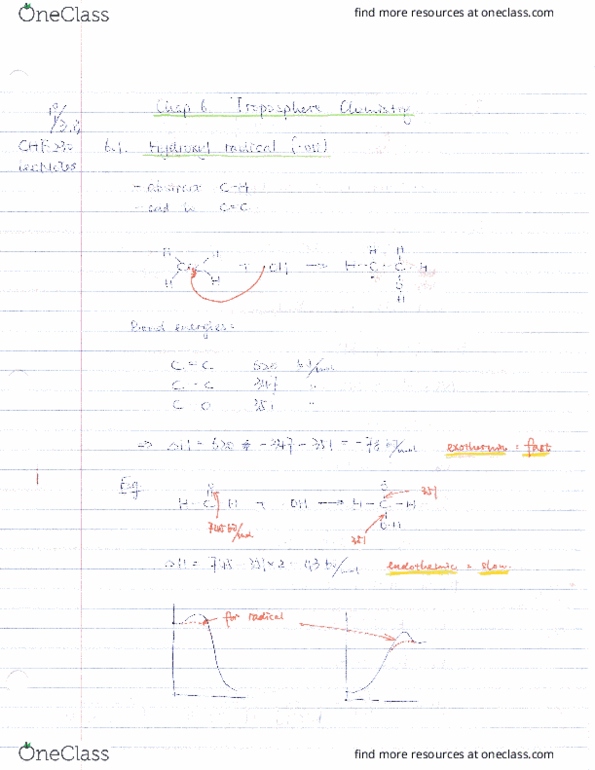 OneClass
find more resources at oneclass.com
Chap 6 Troposphere Chemistry
6.1. Hydroxyl radical (·OH)
- abstract C-H
- add to C=C
H H
C C + OH → H-C-C-H
H H
O
H
Bond energies:
C = C 620 kJ/mol
C - C 347 "
C O 351 "
⇒ ΔH = 620 - 347 - 351 = -78 kJ/mol exothermic = fast
Eg.
H C H + OH → H-C-H
O-H
351
745 kJ/mol
351
ΔH = 745 - 351×2 = 43 kJ/mol endothermic = slow.
for radical
OneClass
find more resources at oneclass.com